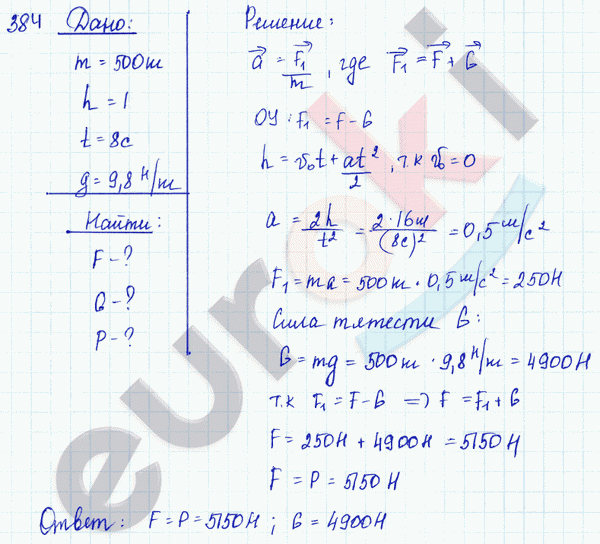 384 Дано:
m = 500 m
h = 1
t = 8c
g = 9,8 H/m
Найти:
F - ?
G - ?
P - ?
Решение:
a⃗ = F₁⃗/m, где F₁⃗ = F⃗ + G⃗
ОУ: F₁ = F - G
h = v₀t + at²/2, т.к v₀ = 0
a = 2h/t² = 2·16m/(8c)² = 0,5 m/c²
F₁ = ma = 500m · 0,5 m/c² = 250H
Сила тятести G:
G = mg = 500m · 9,8 H/m = 4900H
т.к F₁ = F - G => F = F₁ + G
F = 250H + 4900H = 5150H
F = P = 5150H
Ответ: F = P = 5150H; G = 4900H
euroki